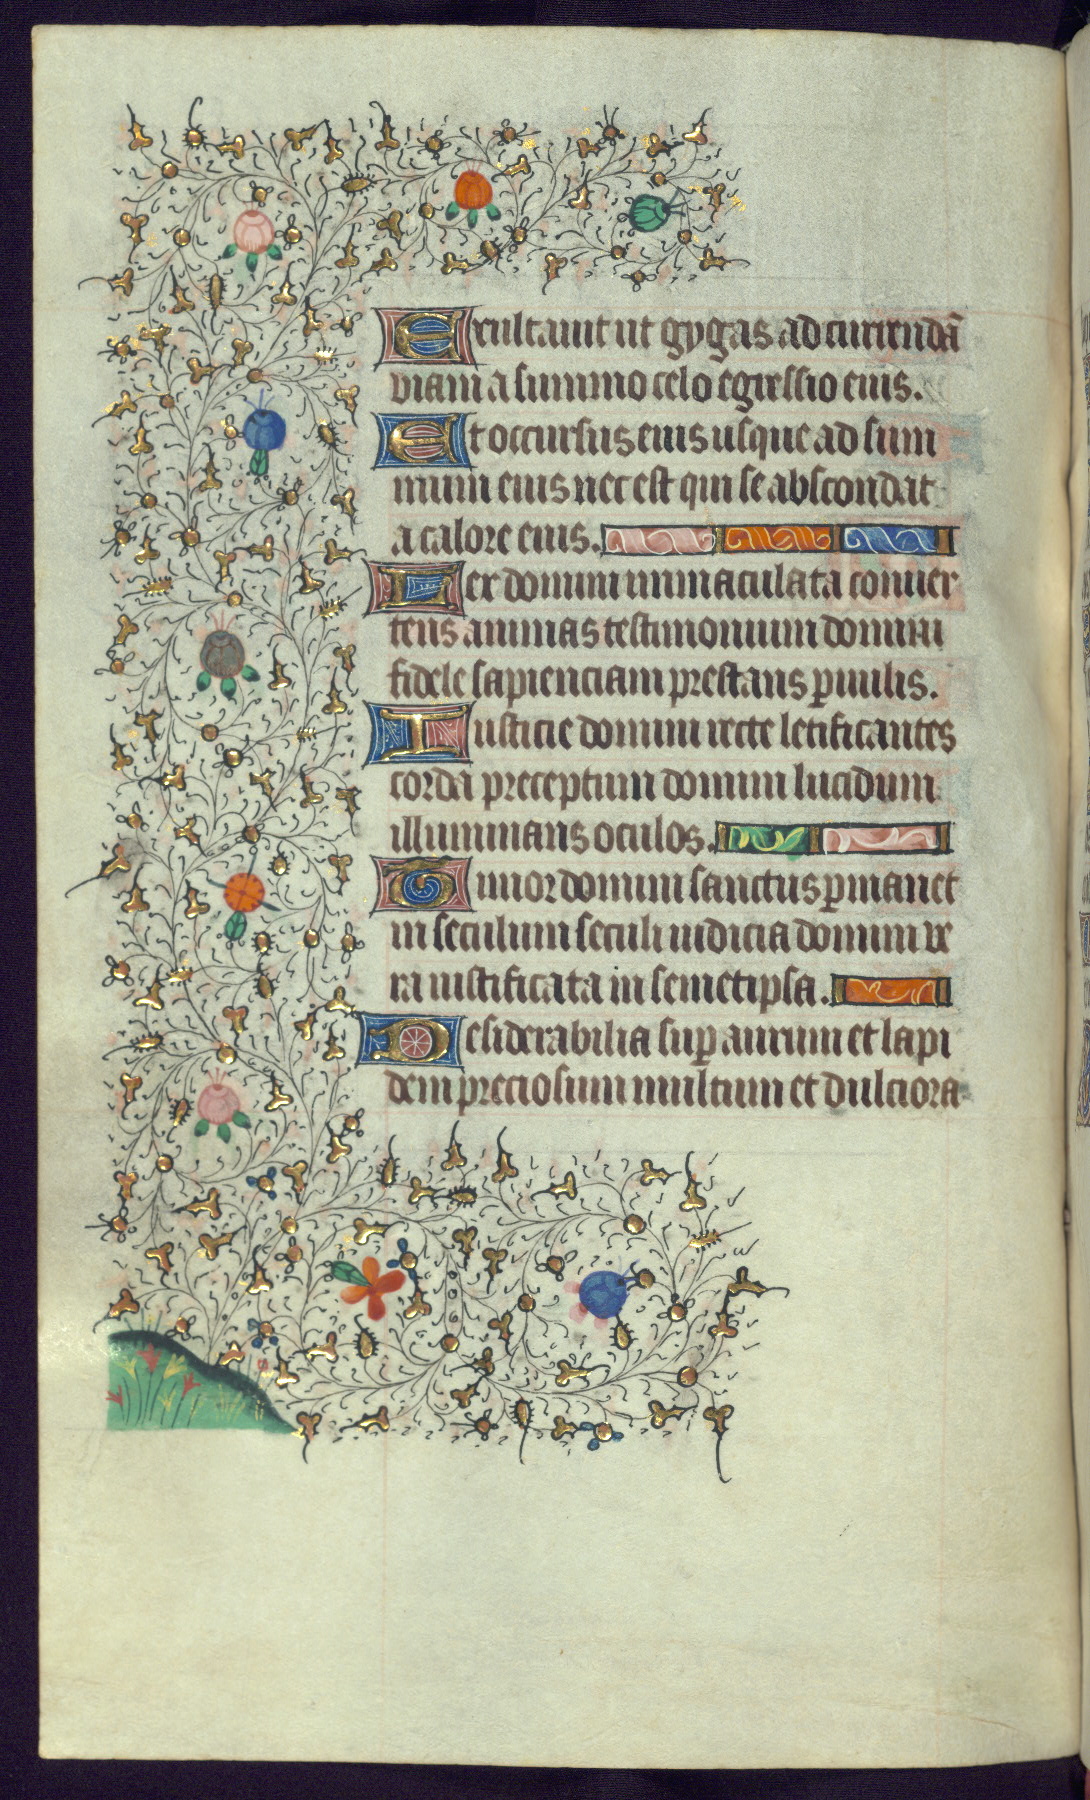 Exultauit ut gygas ad currendã
viam a summo celo egressio eius.
Et occursus eius usque ad sum
mum eius nec est qui se abscondat
a calore eius.
Lex domini immaculata conuer
tens animas testimonium domini
fidele sapienciam prestans ꝑuulis.
Iusticie domini recte letificantes
corda preceptum domini lucidum
illuminans oculos.
Timor domini sanctus ꝑmanet
in seculum seculi iudicia domini ve
ra iustificata in semetipsa.
Desiderabilia suꝑ aurum et lapi
dem preciosum multum et dulciora